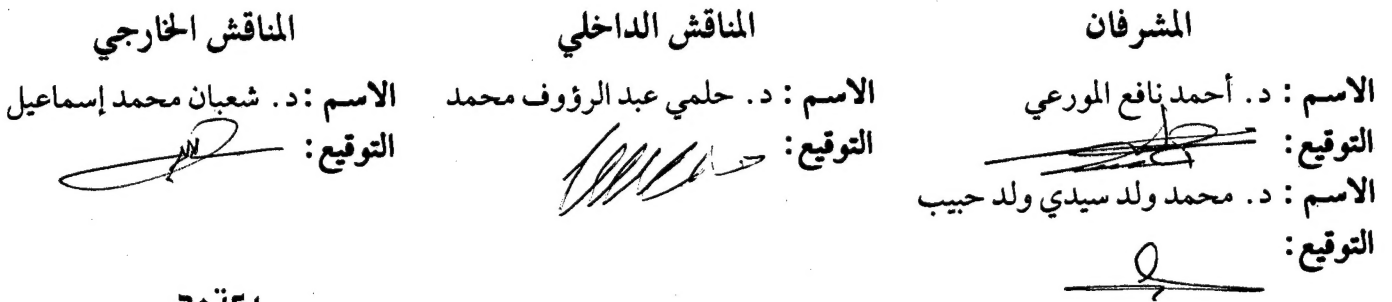 المشرفان
الاسم : د. أحمد نافع المورعي
التوقيع :
الاسم : د. محمد ولد سيدي ولد حبيب
التوقيع :
المناقش الداخلي
الاسم : د. حلمي عبد الرؤوف محمد
التوقيع :
المناقش الخارجي
الاسم : د. شعبان محمد إسماعيل
التوقيع :